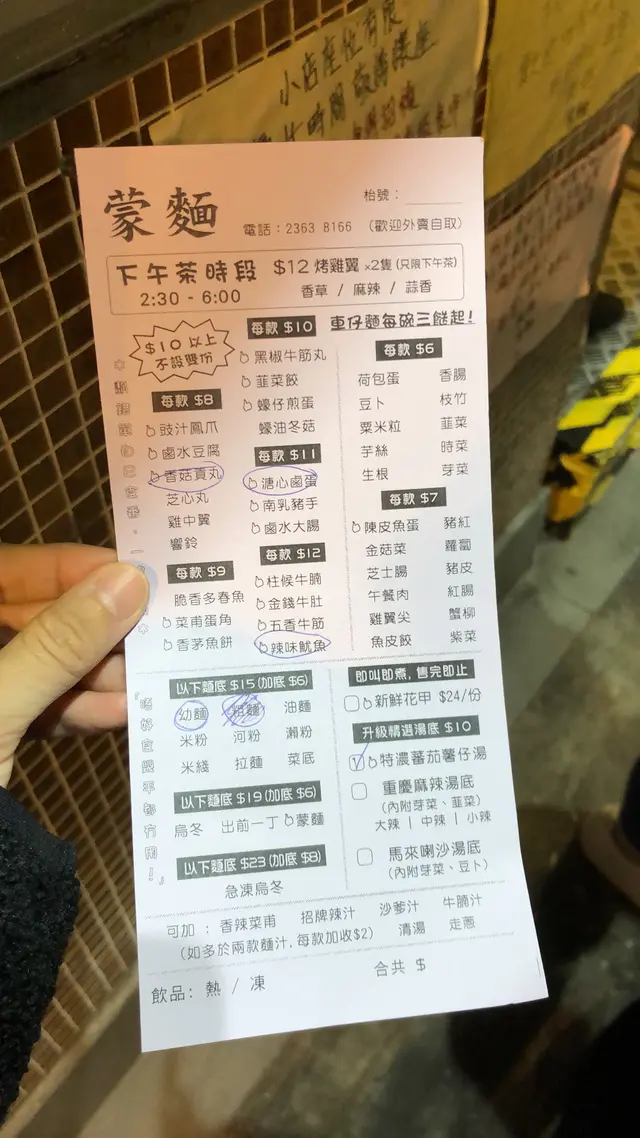 小店座位有限
時間 敬請讓座
蒙麵
枱號：
電話：2363 8166 （歡迎外賣自取）
下午茶時段 $12 烤雞翼 x2隻（只限下午茶）
2:30 - 6:00 香草 / 麻辣 / 蒜香
$10 以上
不設雙份
每款 $8
豉汁鳳爪
鹵水豆腐
香菇貢丸
芝心丸
雞中翼
響鈴
每款 $9
脆香多春魚
菜甫蛋角
香茅魚餅
每款 $10
黑椒牛筋丸
韮菜餃
蠔仔煎蛋
蠔油冬菇
每款 $11
溏心鹵蛋
南乳豬手
鹵水大腸
每款 $12
柱候牛腩
金錢牛肚
五香牛筋
辣味魷魚
車仔麵每碗三餸起！
每款 $6
荷包蛋 香腸
豆卜 枝竹
粟米粒 韮菜
芋絲 時菜
生根 芽菜
每款 $7
陳皮魚蛋 豬紅
金菇菜 蘿蔔
芝士腸 豬皮
午餐肉 紅腸
雞翼尖 蟹柳
魚皮餃 紫菜
「唔好食眼平都有用！」
以下麵底 $15（加底 $6）
幼麵 粗麵 油麵
米粉 河粉 瀨粉
米綫 拉麵 菜底
以下麵底 $19（加底 $6）
烏冬 出前一丁 蒙麵
以下麵底 $23（加底 $8）
急凍烏冬
即叫即煮，售完即止
新鮮花甲 $24/份
升級精選湯底 $10
特濃蕃茄薯仔湯
重慶麻辣湯底
（內附芽菜、韮菜）
大辣 | 中辣 | 小辣
馬來喇沙湯底
（內附芽菜、豆卜）
可加：香辣菜甫 招牌辣汁 沙爹汁 牛腩汁
（如多於兩款麵汁，每款加收$2） 清湯 走蔥
飲品：熱 / 凍
合共 $